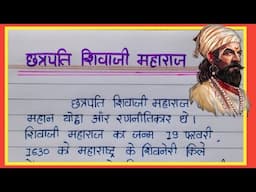 छत्रपति शिवाजी महाराज
छत्रपति शिवाजी महाराज
महान योद्धा और रणनीतिकार थे।
शिवाजी महाराज का जन्म 19 फरवरी
1630 को महाराष्ट्र के शिवनेरी किले